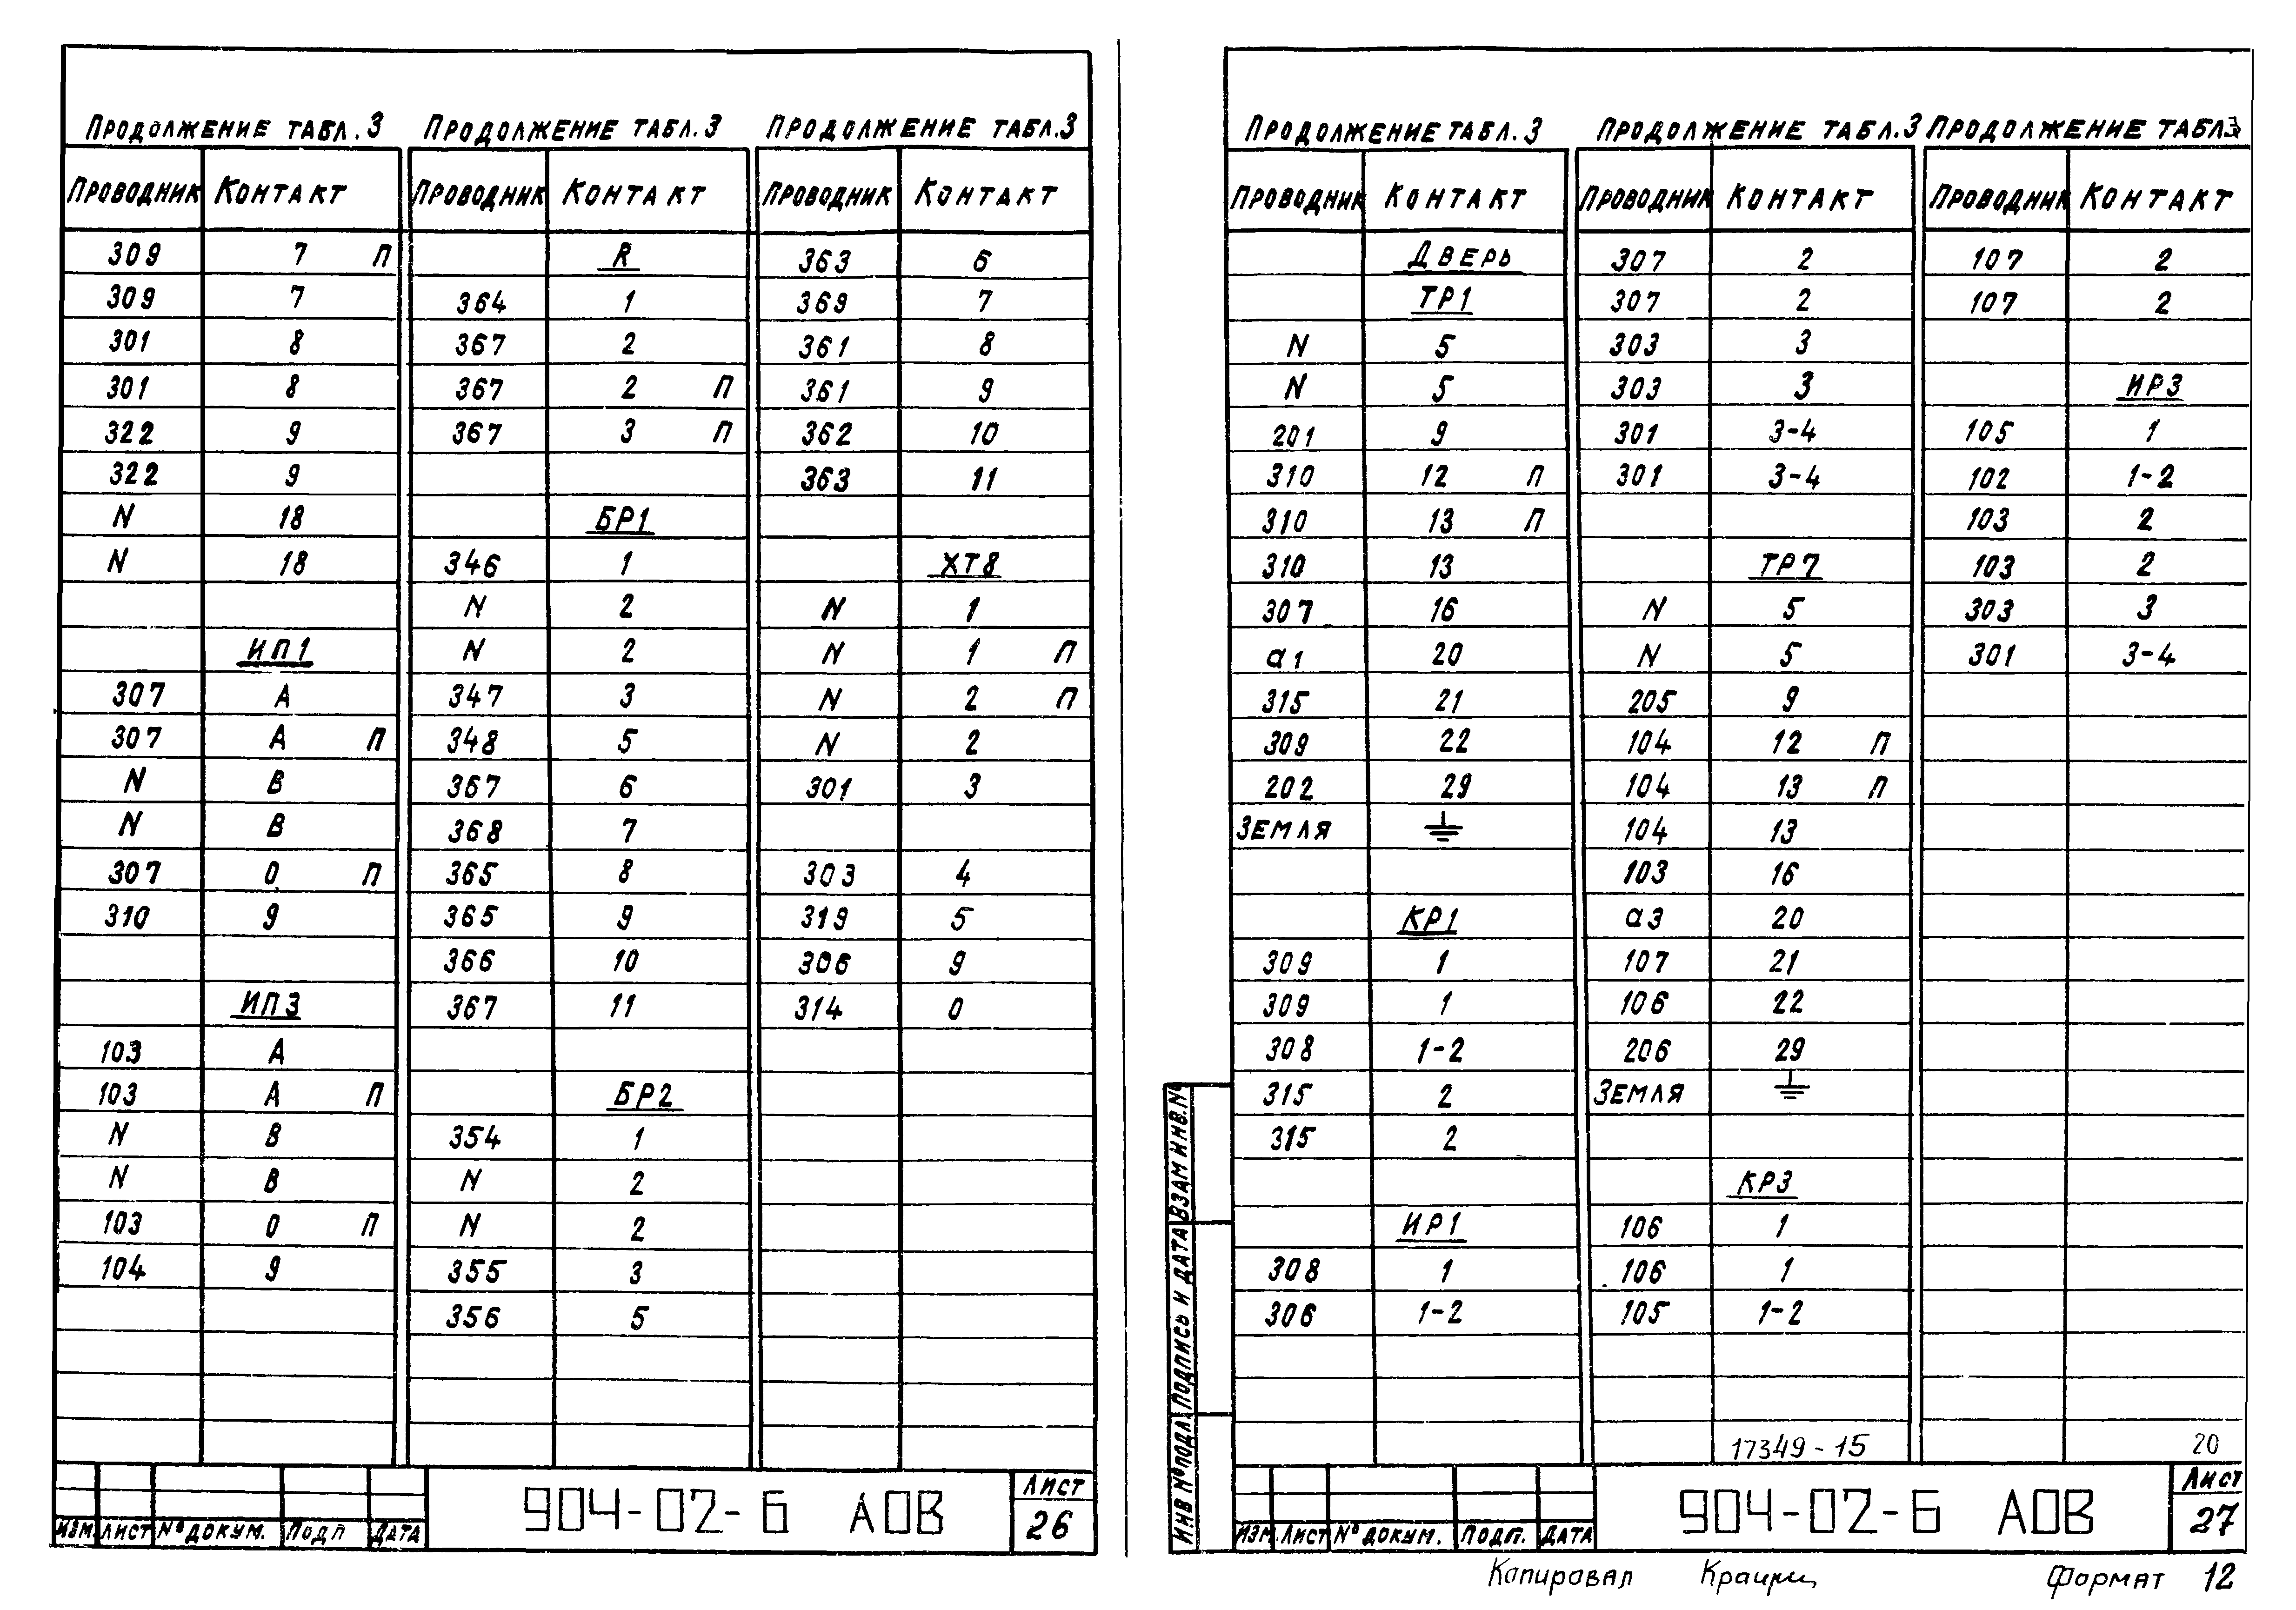 Продолжение табл.3
Проводник Контакт
309 7 П
309 7
301 8
301 8
322 9
322 9
N 18
N 18
ИП1
307 А
307 А П
N В
N В
307 0 П
310 9
ИП3
103 А
103 А П
N В
N В
103 0 П
104 9
Продолжение табл.3
Проводник Контакт
R
364 1
367 2
367 2 П
367 3 П
БР1
346 1
N 2
N 2
347 3
348 5
367 6
368 7
365 8
365 9
366 10
367 11
БР2
354 1
N 2
N 2
355 3
356 5
Продолжение табл.3
Проводник Контакт
363 6
369 7
361 8
361 9
362 10
363 11
ХТ8
N 1
N 1 П
N 2 П
N 2
301 3
303 4
319 5
306 9
314 0
Изм. Лист № докум. Подп Дата
904-02-6 АОВ
Лист
26
Продолжение табл.3
Проводник Контакт
Дверь
ТР1
N 5
N 5
201 9
310 12 П
310 13 П
310 13
307 16
а1 20
315 21
309 22
202 29
Земля ⏚
КР1
309 1
309 1
308 1-2
315 2
315 2
ИР1
308 1
306 1-2
Продолжение табл.3
Проводник Контакт
307 2
307 2
303 3
303 3
301 3-4
301 3-4
ТР7
N 5
N 5
205 9
104 12 П
104 13 П
104 13
103 16
а3 20
107 21
106 22
206 29
Земля ⏚
КР3
106 1
106 1
105 1-2
Продолжение табл.3
Проводник Контакт
107 2
107 2
ИР3
105 1
102 1-2
103 2
103 2
303 3
301 3-4
Инв № подл. Подпись и дата Взам инв. №
17349-15
20
Изм. Лист № докум. Подп. Дата
904-02-6 АОВ
Лист
27
Копировал
Формат 12